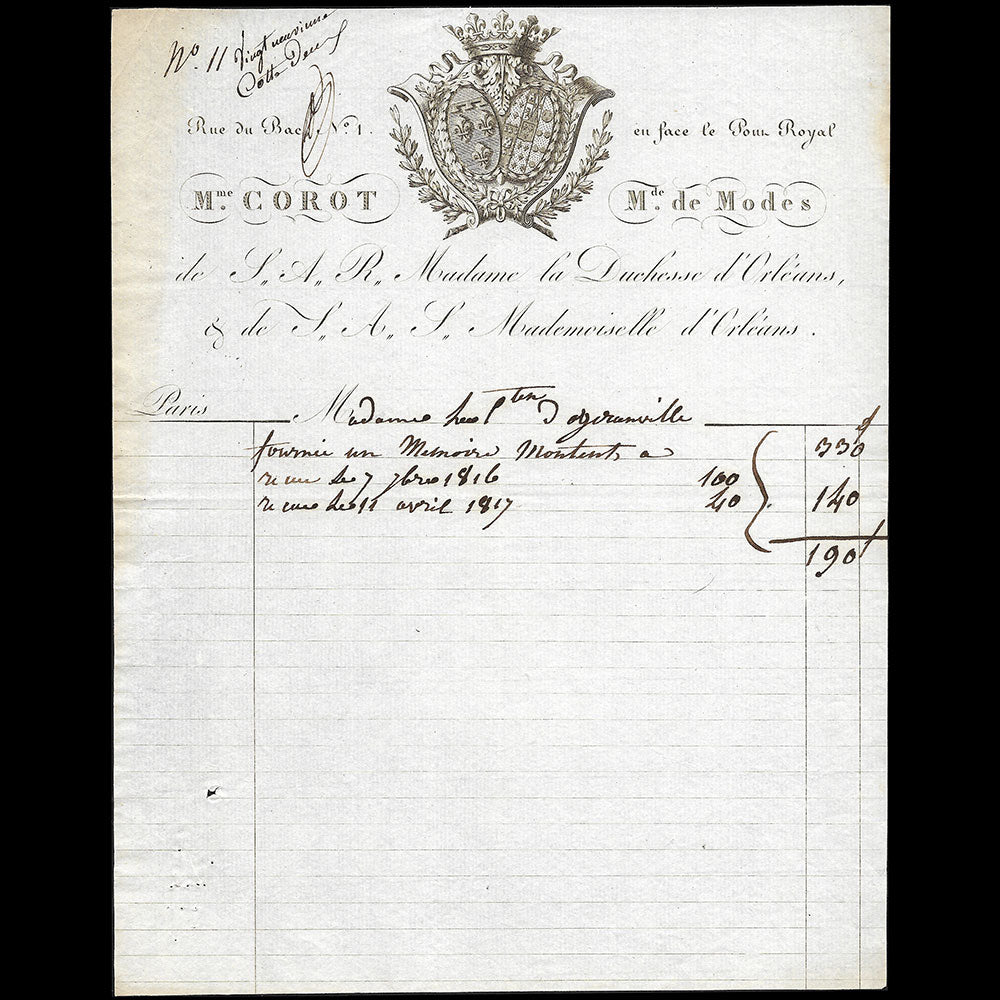 No. 11 Vingt neuvieme
Cotte Deux
Rue du Bac, No. 1. en face le Pont Royal
Mme. COROT Mde. de Modes
de S,, A,, R,, Madame la Duchesse d'Orléans,
& de S,, A,, S,, Mademoiselle d'Orléans.
Paris Madame
fournie un Memoire Montent a 330f
recue le 7 9bre 1816 100
recue le 11 avril 1817 40 140
190f